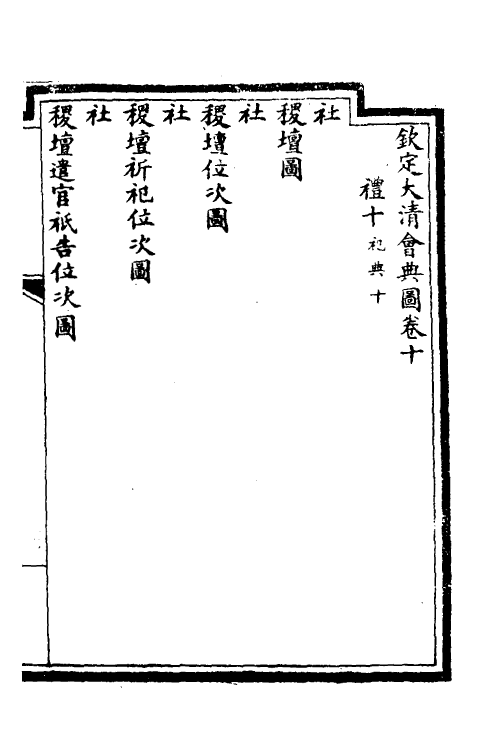 欽定大清會典圖卷十
禮十祀典十
社
稷壇圖
社
稷壇位次圖
社
稷壇祈祀位次圖
社
稷壇遣官祗告位次圖